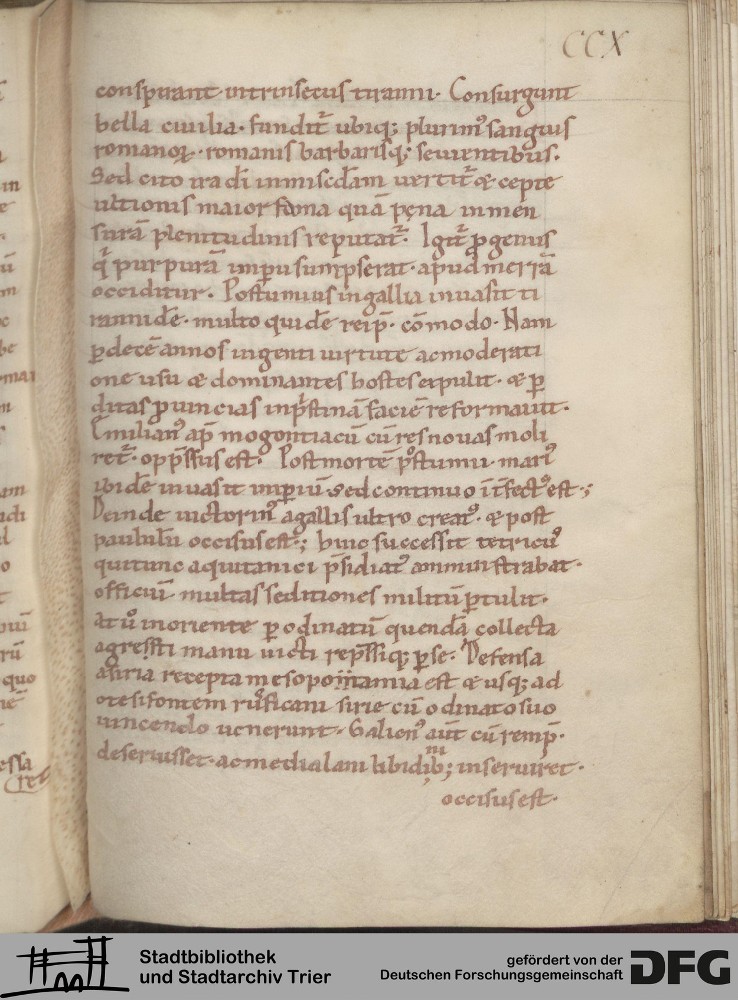 CCX
conspirant intrinsecus tiranni. Consurgunt
bella ciuilia. fundit᷑ ubiq; plurim᷒ sanguis
romanoꝝ. romanis barbarisq; seuientibus.
Sed cito ira dī inmiscd̄am uertit᷑ & cepte
ultionis maior forma quā pęna in men
surā plenitudinis reputat᷑. Igit᷑ ꝓgenuus
q̇ purpurā imperii sumpserat. apud mirrā
occiditur. Postumius in gallia inuasit ti
rannidē. multo quidē reip̄. cōmodo. Nam
ꝑ decē annos ingenti uirtute ac moderati
one usu & dominantes hostes expulit. & ꝑ
ditas ꝓuincias in pͥstinā faciē reformauit.
Emilian᷒ ap̄ mogontiacū cū res nouas moli
ret᷑. opp̄ssus est. Post mortē postumii. mari᷒
ibidē inuasit imperiū. sed continuo īt̄fect᷒ est.;
Deinde uictorin᷒ a gallis ultro creat᷒. & post
paululū occisus est.; huic successit tetricus᷒
qui tunc aquitanici p̄sidiat᷒ amministrabat.
officiū. multas seditiones militū ꝑtulit.
at ů in oriente ꝑ odinatū quendā collecta
agresti manu uicti rep̄ssiq; ꝑse. Defensa
asiria recepta mesopotamia est & usq; ad
otesifontem rustficani sirie cū odinato suo
uincendo uenerunt. Galien᷒ aūt cū remp̄.
deseruisset. ac mediolani libidinib; inseruiret.
occisus est.
essa
ret
quo
Stadtbibliothek
und Stadtarchiv Trier
gefördert von der
Deutschen Forschungsgemeinschaft
DFG